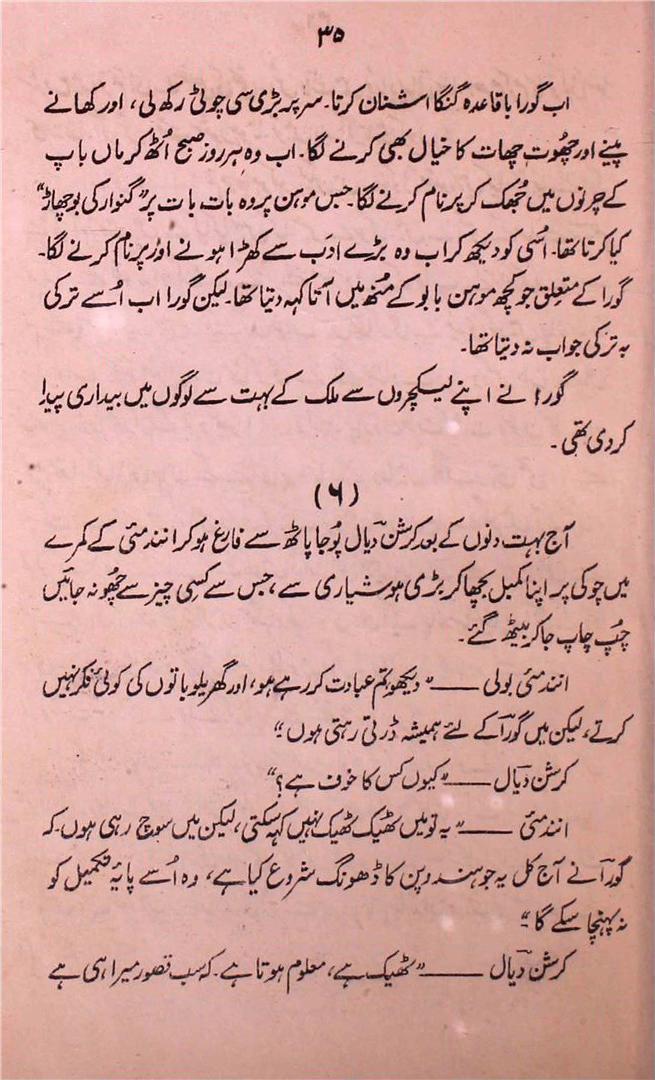 ۳۵
اب گورا باقاعدہ گنگا اشنان کرتا۔ سر پر بڑی سی چوٹی رکھ لی، اور کھانے
پینے اور چھُوت چھات کا خیال بھی کرنے لگا۔ اب وہ ہر روز صبح اُٹھ کر ماں باپ
کے چرنوں میں جُھک کر پرنام کرنے لگا۔ جس موہن پر وہ بات بات پر "گنوار کی بوچھاڑ"
کیا کرتا تھا۔ اُسی کو دیکھ کر اب وہ بڑے ادَب سے کھڑا ہونے اور پرنام کرنے لگا۔
گورا کے متعلق جو کچھ موہن بابو کے مُنھ میں آتا کہہ دیتا تھا۔ لیکن گورا اب اُسے ترکی
بہ ترکی جواب نہ دیتا تھا۔
گورا نے اپنے لیکچروں سے ملک کے بہت سے لوگوں میں بیداری پیدا
کر دی تھی۔
(۶)
آج بہت دنوں کے بعد کرشن دیال پُوجا پاٹھ سے فارغ ہو کر انند مئی کے کمرے
میں چوکی پر اپنا کمبل بچھا کر بڑی ہوشیاری سے، جس سے کسی چیز سے چھُو نہ جائیں
چُپ چاپ جا کر بیٹھ گئے۔
انند مئی بولی —— "دیکھو تم عبادت کر رہے ہو، اور گھریلو باتوں کی کوئی فکر نہیں
کرتے، لیکن میں گورا کے لئے ہمیشہ ڈرتی رہتی ہوں"
کرشن دیال —— "کیوں کس کا خوف ہے؟"
انند مئی —— "یہ تو میں ٹھیک ٹھیک نہیں کہہ سکتی، لیکن میں سوچ رہی ہوں۔ کہ
گورا نے آج کل یہ جو ہندوپن کا ڈھونگ شروع کیا ہے، وہ اُسے پایۂ تکمیل کو
نہ پہنچا سکے گا"
کرشن دیال —— "ٹھیک ہے، معلوم ہوتا ہے۔ کہ سب قصور میرا ہی ہے